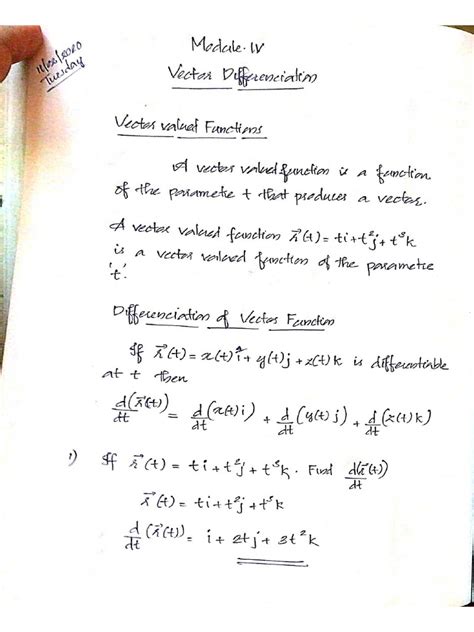 11/08/2020
Tuesday
Module-IV
Vector Differenciation
Vector valued Functions
A vector valued function is a function
of the parametre t that produces a vector.
A vector valued function r⃗(t) = ti + t²j + t³k
is a vector valued function of the parametre
't'.
Differenciation of Vector Function
If r⃗(t) = x(t)i + y(t)j + z(t)k is differentiable
at t then
d/dt (r⃗(t)) = d/dt (x(t)i) + d/dt (y(t)j) + d/dt (z(t)k)
1) If r⃗(t) = ti + t²j + t³k. Find d(r⃗(t))/dt
r⃗(t) = ti + t²j + t³k
d/dt (r⃗(t)) = i + 2tj + 3t²k